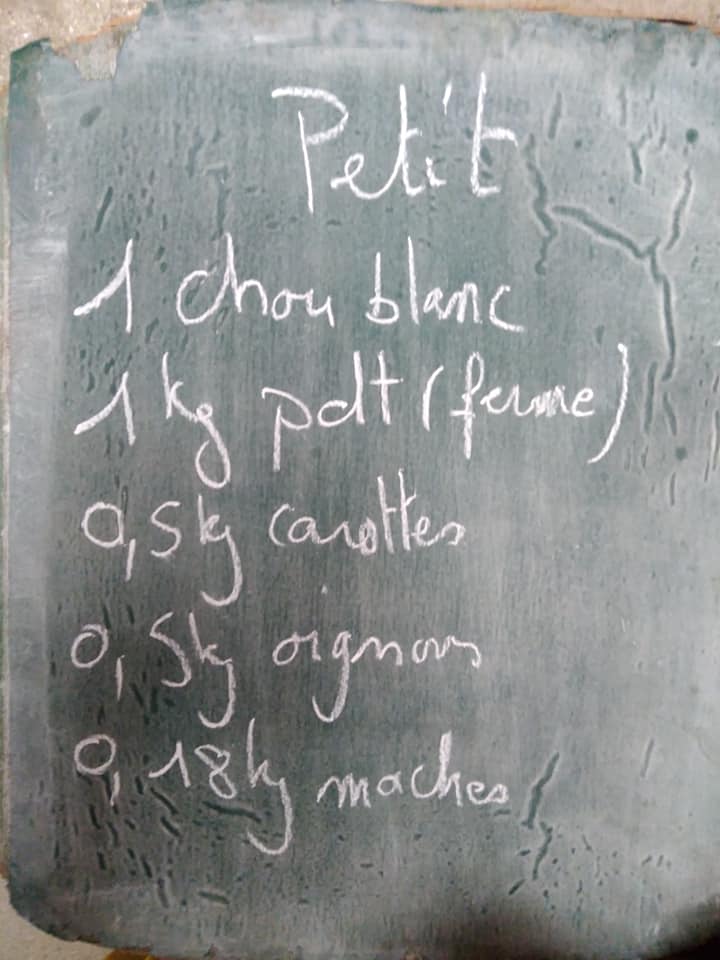 Petit
1 chou blanc
1 kg pdt (ferme)
0,5kg carottes
0,5kg oignons
0,18kg maches